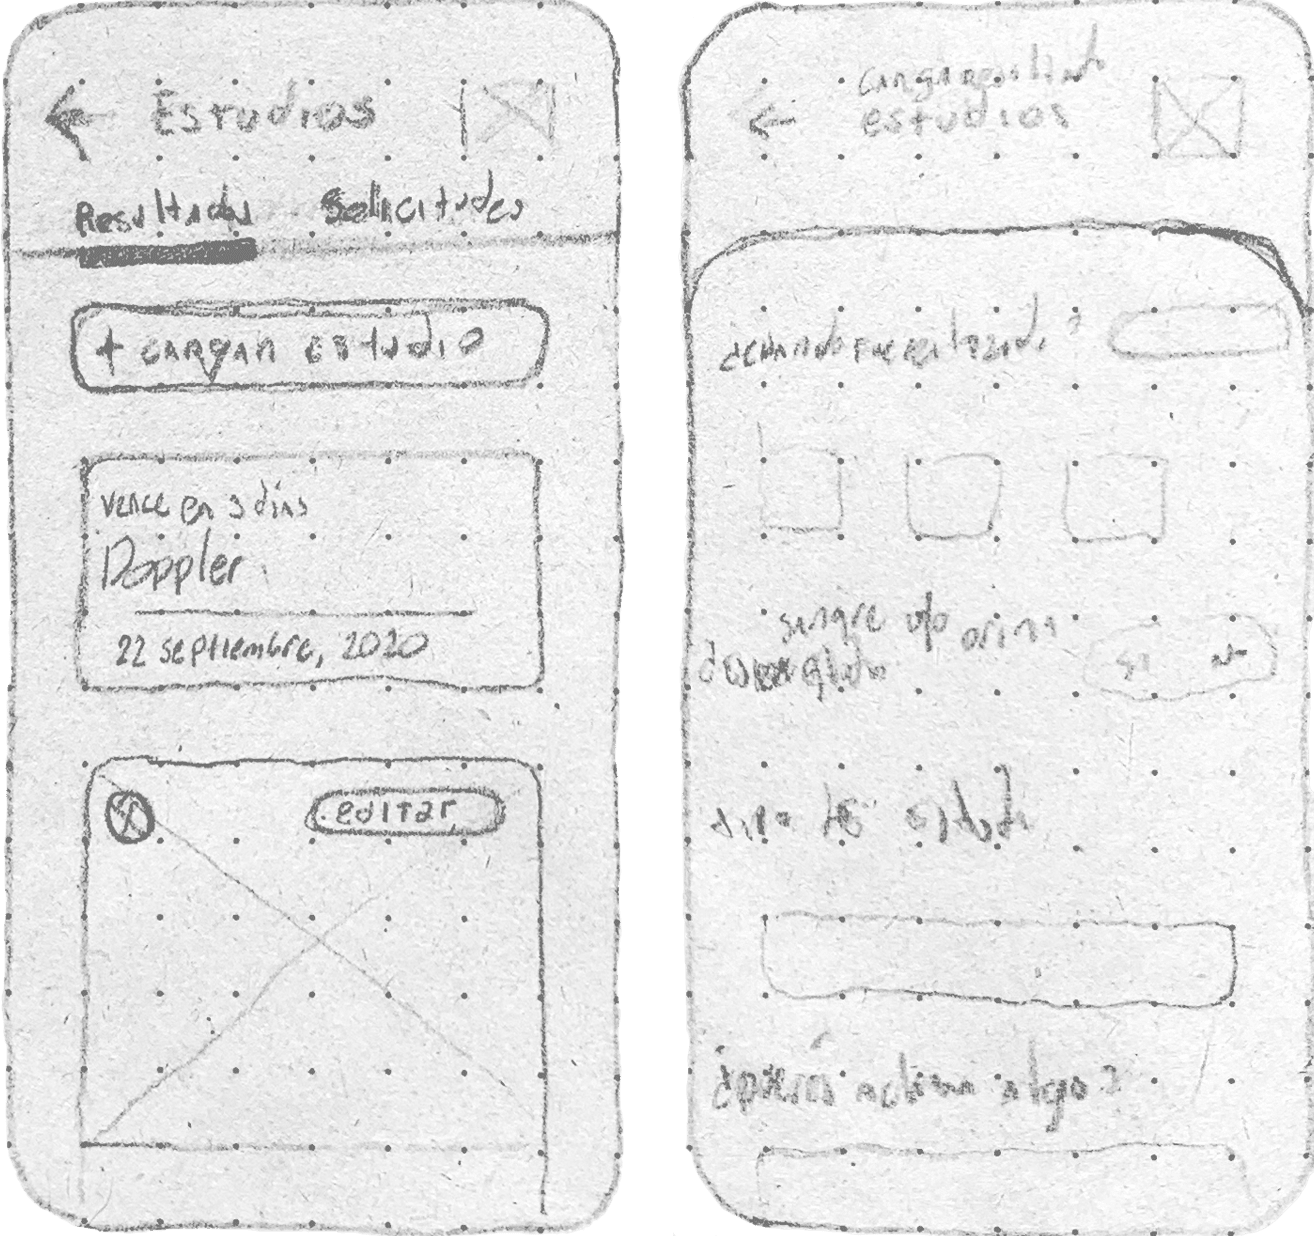 Estudios
Resultados Solicitudes
+ cargar estudio
vence en 3 días
Doppler
22 septiembre, 2020
editar
cargar resultado
estudios
¿cuándo fue realizado?
sangre y/o orina
si no
estudio
¿querés aclarar algo?